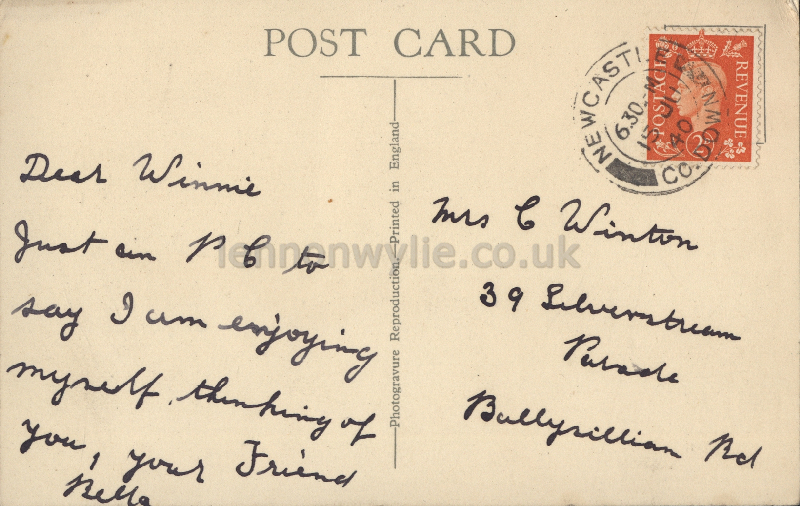 POST CARD
NEWCASTLE
CO. DOWN
6.30 PM
15 JU
40
POSTAGE
REVENUE
2D
Dear Winnie
Just an P C to
say I am enjoying
myself, thinking of
you, your Friend
Bella
Photogravure Reproduction—Printed in England
Mrs C Winton
39 Silverstream
Parade
Ballysillian Rd
lennonwylie.co.uk